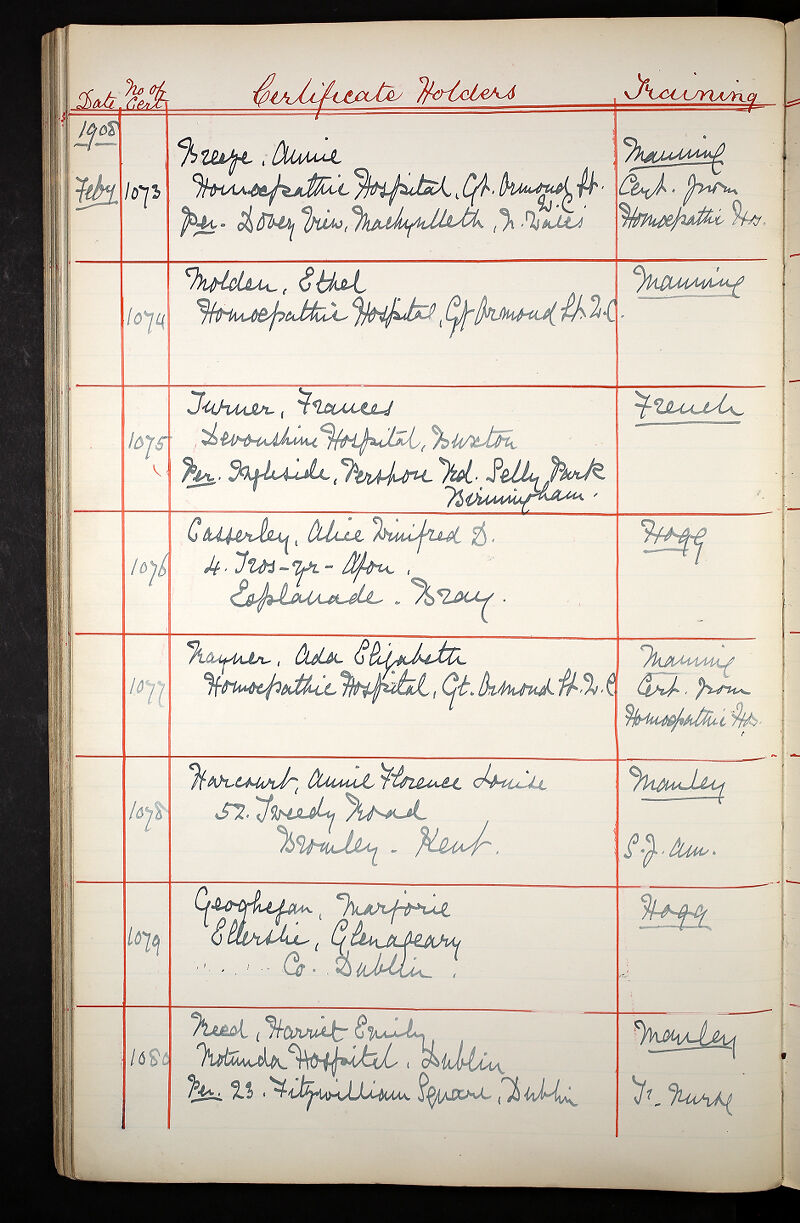 Date No of Cert Certificate Holders Training
1908
Breeze, Annie Manning
Feby 1073 Homoepathic Hospital, Gt. Ormond St. W.C Cert. from
Per. Dovey View, Machynlleth, N. Wales Homoepathic Hos.
Molden, Ethel Manning
1074 Homoepathic Hospital, Gt Ormond St. W.C.
Turner, Frances French
1075 Devonshire Hospital, Buxton
Per. Ingleside, Pershore Rd. Selly Park
Birmingham.
Casserley, Alice Winifred D. Hogg
1076 4. Tros-yr-Afon.
Esplanade. Bray.
Rayner, Ada Elizabeth Manning
1077 Homoepathic Hospital, Gt. Ormond St. W.C Cert. from
Homoepathic Hos.
Harcourt, Annie Florence Louise Manley
1078 52. Tweedy Road
Bromley - Kent. S.J. Am.
Geoghegan, Marjorie Hogg
1079 Ellerslie, Glenageary
Co. Dublin.
Reed, Harriet Emily Manley
1080 Rotunda Hospital, Dublin
Per. 23. Fitzwilliam Square, Dublin Tr. Nurse